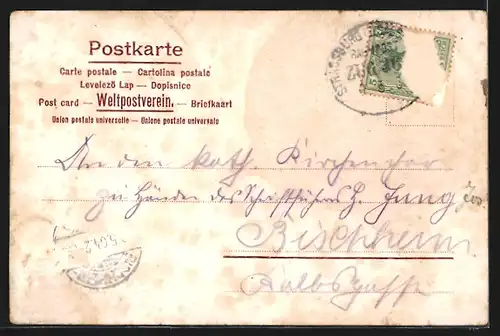 Postkarte
Carte postale — Cartolina postale
Levelező Lap — Dopisnice
Post card — Weltpostverein. — Briefkaart
Union postale universelle — Unione postale universale
STRASSBURG
ZUG
An den kath. Kirchenchor
zu Händen des Schriftführers H. Jung Jos
Bischheim
Kalbsgasse